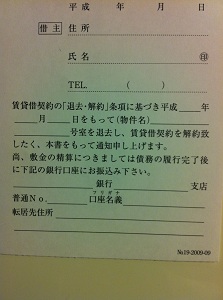 平成　年　月　日
借主 住所
氏名　㊞
TEL.　(　)
賃貸借契約の「退去・解約」条項に基づき平成　年
月　日をもって(物件名)
号室を退去し、賃貸借契約を解約致
したく、本書をもって通知申し上げます。
尚、敷金の精算につきましては債務の履行完了後
に下記の銀行口座にお振込み下さい。
銀行　支店
フリガナ
普通No.　口座名義
転居先住所
No.19-2009-09